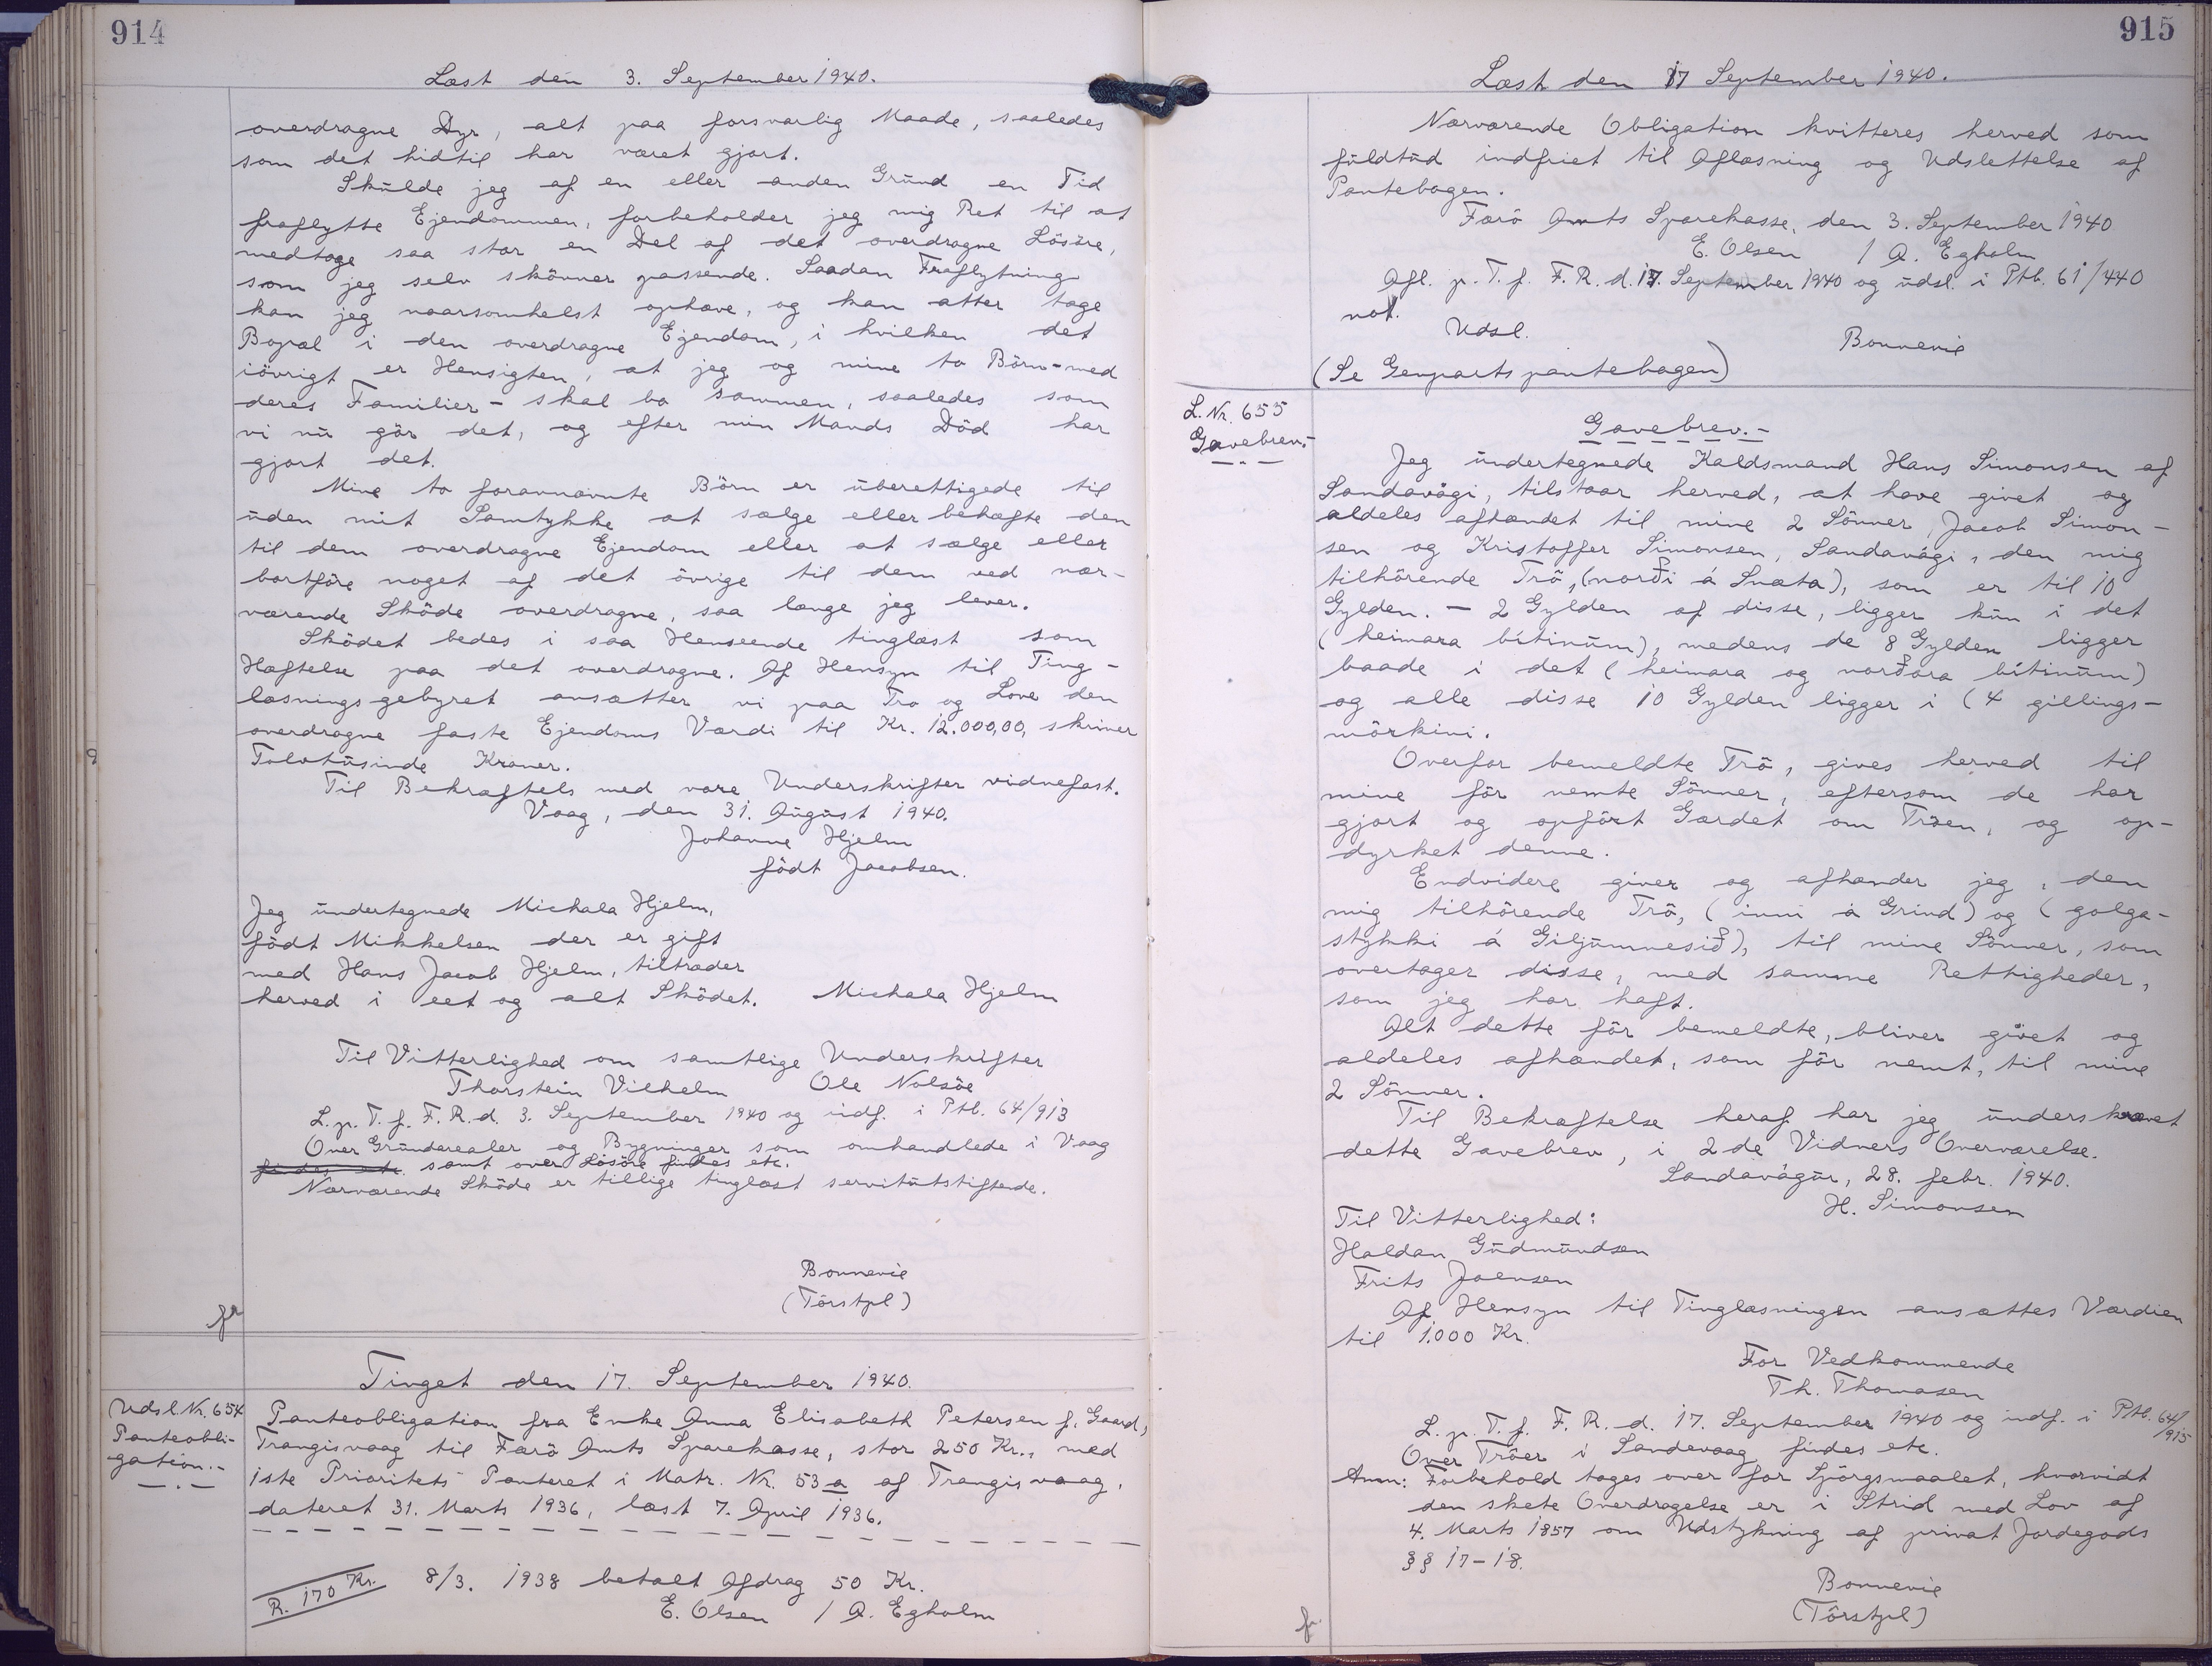 914
Læst den 3. September 1940.
overdragne Dyr, alt paa forsvarlig Maade, saaledes
som det hidtil har været gjort.
Skulde jeg af en eller anden Grund en Tid
fraflytte Ejendommen, forbeholder jeg mig Ret til at
medtage saa stor en Del af det overdragne Lösöre,
som jeg selv skönner passende. Saadan Fraflytning
kan jeg naarsomhelst ophæve, og kan atter tage
Bopæl i den overdragne Ejendom, i hvilken det
iövrigt er Hensigten, at jeg og mine to Börn - med
deres Familier - skal bo sammen, saaledes som
vi nu gör det, og efter min Mands Död har
gjort det.
Mine to forannævnte Börn er uberettigede til
uden mit Samtykke at sælge eller behæfte den
til dem overdragne Ejendom eller at sælge eller
bortföre noget af det övrige til dem ved nær-
værende Sköde overdragne, saa længe jeg lever.
Sködet bedes i saa Henseende tinglæst som
Hæftelse paa det overdragne. Af Hensyn til Ting-
læsningsgebyret ansætter vi paa Tro og Love den
overdragne faste Ejendoms Værdi til Kr. 12.000,00, skriver
Tolvtusinde Kroner.
Til Bekræftels med vore Underskrifter vidnefast.
Vaag, den 31. August 1940.
Johanne Hjelm
födt Jacobsen.
Jeg undertegnede Michala Hjelm,
födt Mikkelsen der er gift
med Hans Jacob Hjelm, tiltræder
herved i eet og alt Sködet. Michala Hjelm
Til Vitterlighed om samtlige Underskrifter
Thorstein Vilhelm Ole Nolsöe
L. p. T. f. F. R. d. 3. September 1940 og indf. i Ptb. 64/913
Over Grundarealer og Bygninger som omhandlede i Vaag
findes etc. samt over Lösöre findes etc.
Nærværende Sköde er tillige tinglæst servitutstiftende.
Bonnevie
(Törstpl)
fr
Tinget den 17. September 1940.
Udsl. Nr. 654
Panteobli-
gation.-
Panteobligation fra Enke Anna Elisabeth Petersen f. Gaard,
Trangisvaag til Færö Amts Sparekasse, stor 250 Kr., med
1ste Prioritets Panteret i Matr. Nr. 53 a af Trangisvaag,
dateret 31. Marts 1936, læst 7. April 1936.
R. 170 Kr. 8/3. 1938 betalt Afdrag 50 Kr.
E. Olsen / A. Egholm
915
Læst den 17 September 1940.
Nærværende Obligation kvitteres herved som
fuldtud indfriet til Aflæsning og Udslettelse af
Pantebogen.
Færö Amts Sparekasse, den 3. September 1940
E. Olsen / A. Egholm
Afl. p. T. f. F. R. d. 17. September 1940 og udsl. i Ptb. 61/440
not.
Udsl.
Bonnevie
(Se Genpartspantebogen)
L. Nr. 655
Gavebrev.-
Gavebrev.-
Jeg undertegnede Kaldsmand Hans Simonsen af
Sandavági, tilstaar herved, at have givet og
aldeles afhændet til mine 2 Sönner, Jacob Simon-
sen og Kristoffer Simonsen, Sandavági, den mig
tilhörende Trö, (norði á Snæta), som er til 10
Gylden. - 2 Gylden af disse, ligger kun i det
(heimara bítinum), medens de 8 Gylden ligger
baade i det (heimara og norðara bítinum)
og alle disse 10 Gylden ligger i (4 gillings-
mörkini.
Overfor bemeldte Trö, gives herved til
mine för nemte Sönner, eftersom de har
gjort og opfört Gærdet om Tröen, og op-
dyrket denne.
Endvidere giver og afhænder jeg, den
mig tilhörende Trö, (inni á Grind) og (golga-
stykki á Giljumnesið), til mine Sönner, som
overtager disse, med samme Rettigheder,
som jeg har haft.
Alt dette för bemeldte, bliver givet og
aldeles afhændet, som för nemt, til mine
2 Sönner.
Til Bekræftelse heraf har jeg underskrevet
dette Gavebrev, i 2 de Vidners Overværelse.
Sandavágur, 28. febr. 1940.
H. Simonsen
Til Vitterlighed:
Haldan Gudmundsen
Frits Joensen
Af Hensyn til Tinglæsningen ansættes Værdien
til 1.000 Kr.
For Vedkommende
Th. Thomasen
L. p. T. f. F. R. d. 17. September 1940 og indf. i Ptb. 64/915
Over Tröer i Sandevaag findes etc.
Anm: Forbehold tages over for Spörgsmaalet, hvorvidt
den skete Overdragelse er i Strid med Lov af
4. Marts 1857 om Udstykning af privat Jordegods
§§ 17-18.
Bonnevie
(Törstpl)
fr.